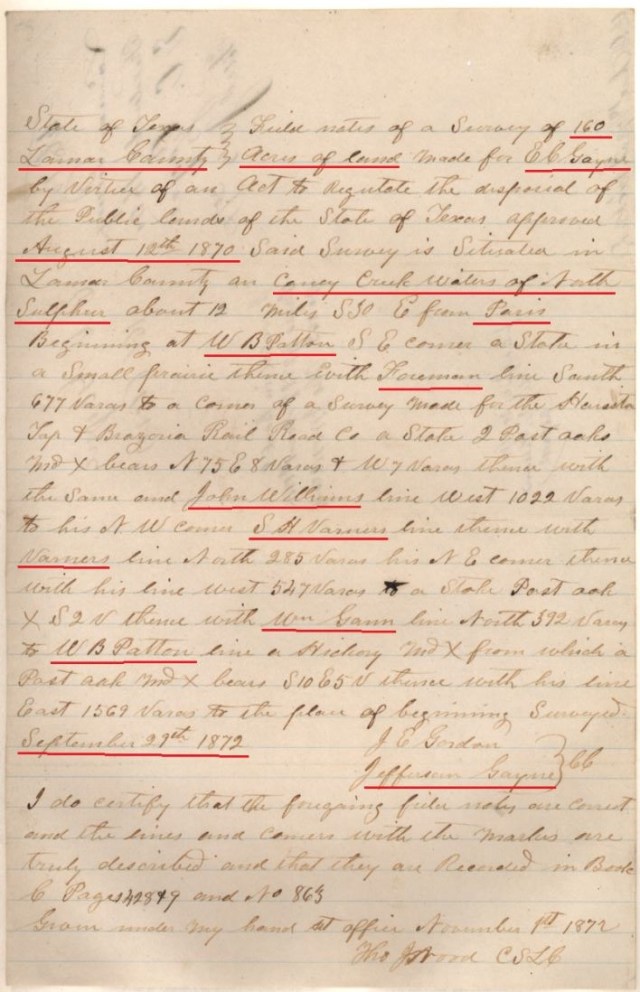 State of Texas } Field notes of a Survey of 160
Lamar County } Acres of land made for E C Gayne
by Virtue of an Act to Regulate the disposal of
the Public lands of the State of Texas approved
August 12th 1870 Said Survey is Situated in
Lamar County on Caney Creek Waters of North
Sulphur about 12 Miles S30 E from Paris
Beginning at W B Patton S E corner a Stake in
a Small prairie thence with Foreman line South
677 Varas to a corner of a Survey made for the
Tap & Brazoria Rail Road Co a Stake 2 Post oaks
Md X bears N 75 E 8 Varas & W 7 Varas thence with
the Same and John Williams line West 1022 Varas
to his N W corner S H Varners line thence with
Varners line North 285 Varas his N E corner thence
with his line West 547 Varas to a Stake Post oak
X S 2 V thence with Wm Gann line North 392 Varas
to W B Patton line a Hickory Md X from which a
Post oak Md X bears S10 E5 V thence with his line
East 1569 Varas to the place of beginning Surveyed
September 29th 1872
J E Gordon
Jefferson Gayne } CC
I do certify that the foregoing field notes are correct
and the lines and corners with the Marks are
truly described and that they are Recorded in Book
C Pages 428&9 and No 863
Given under my hand at office November 1st 1872
Tho J Wood C S L C